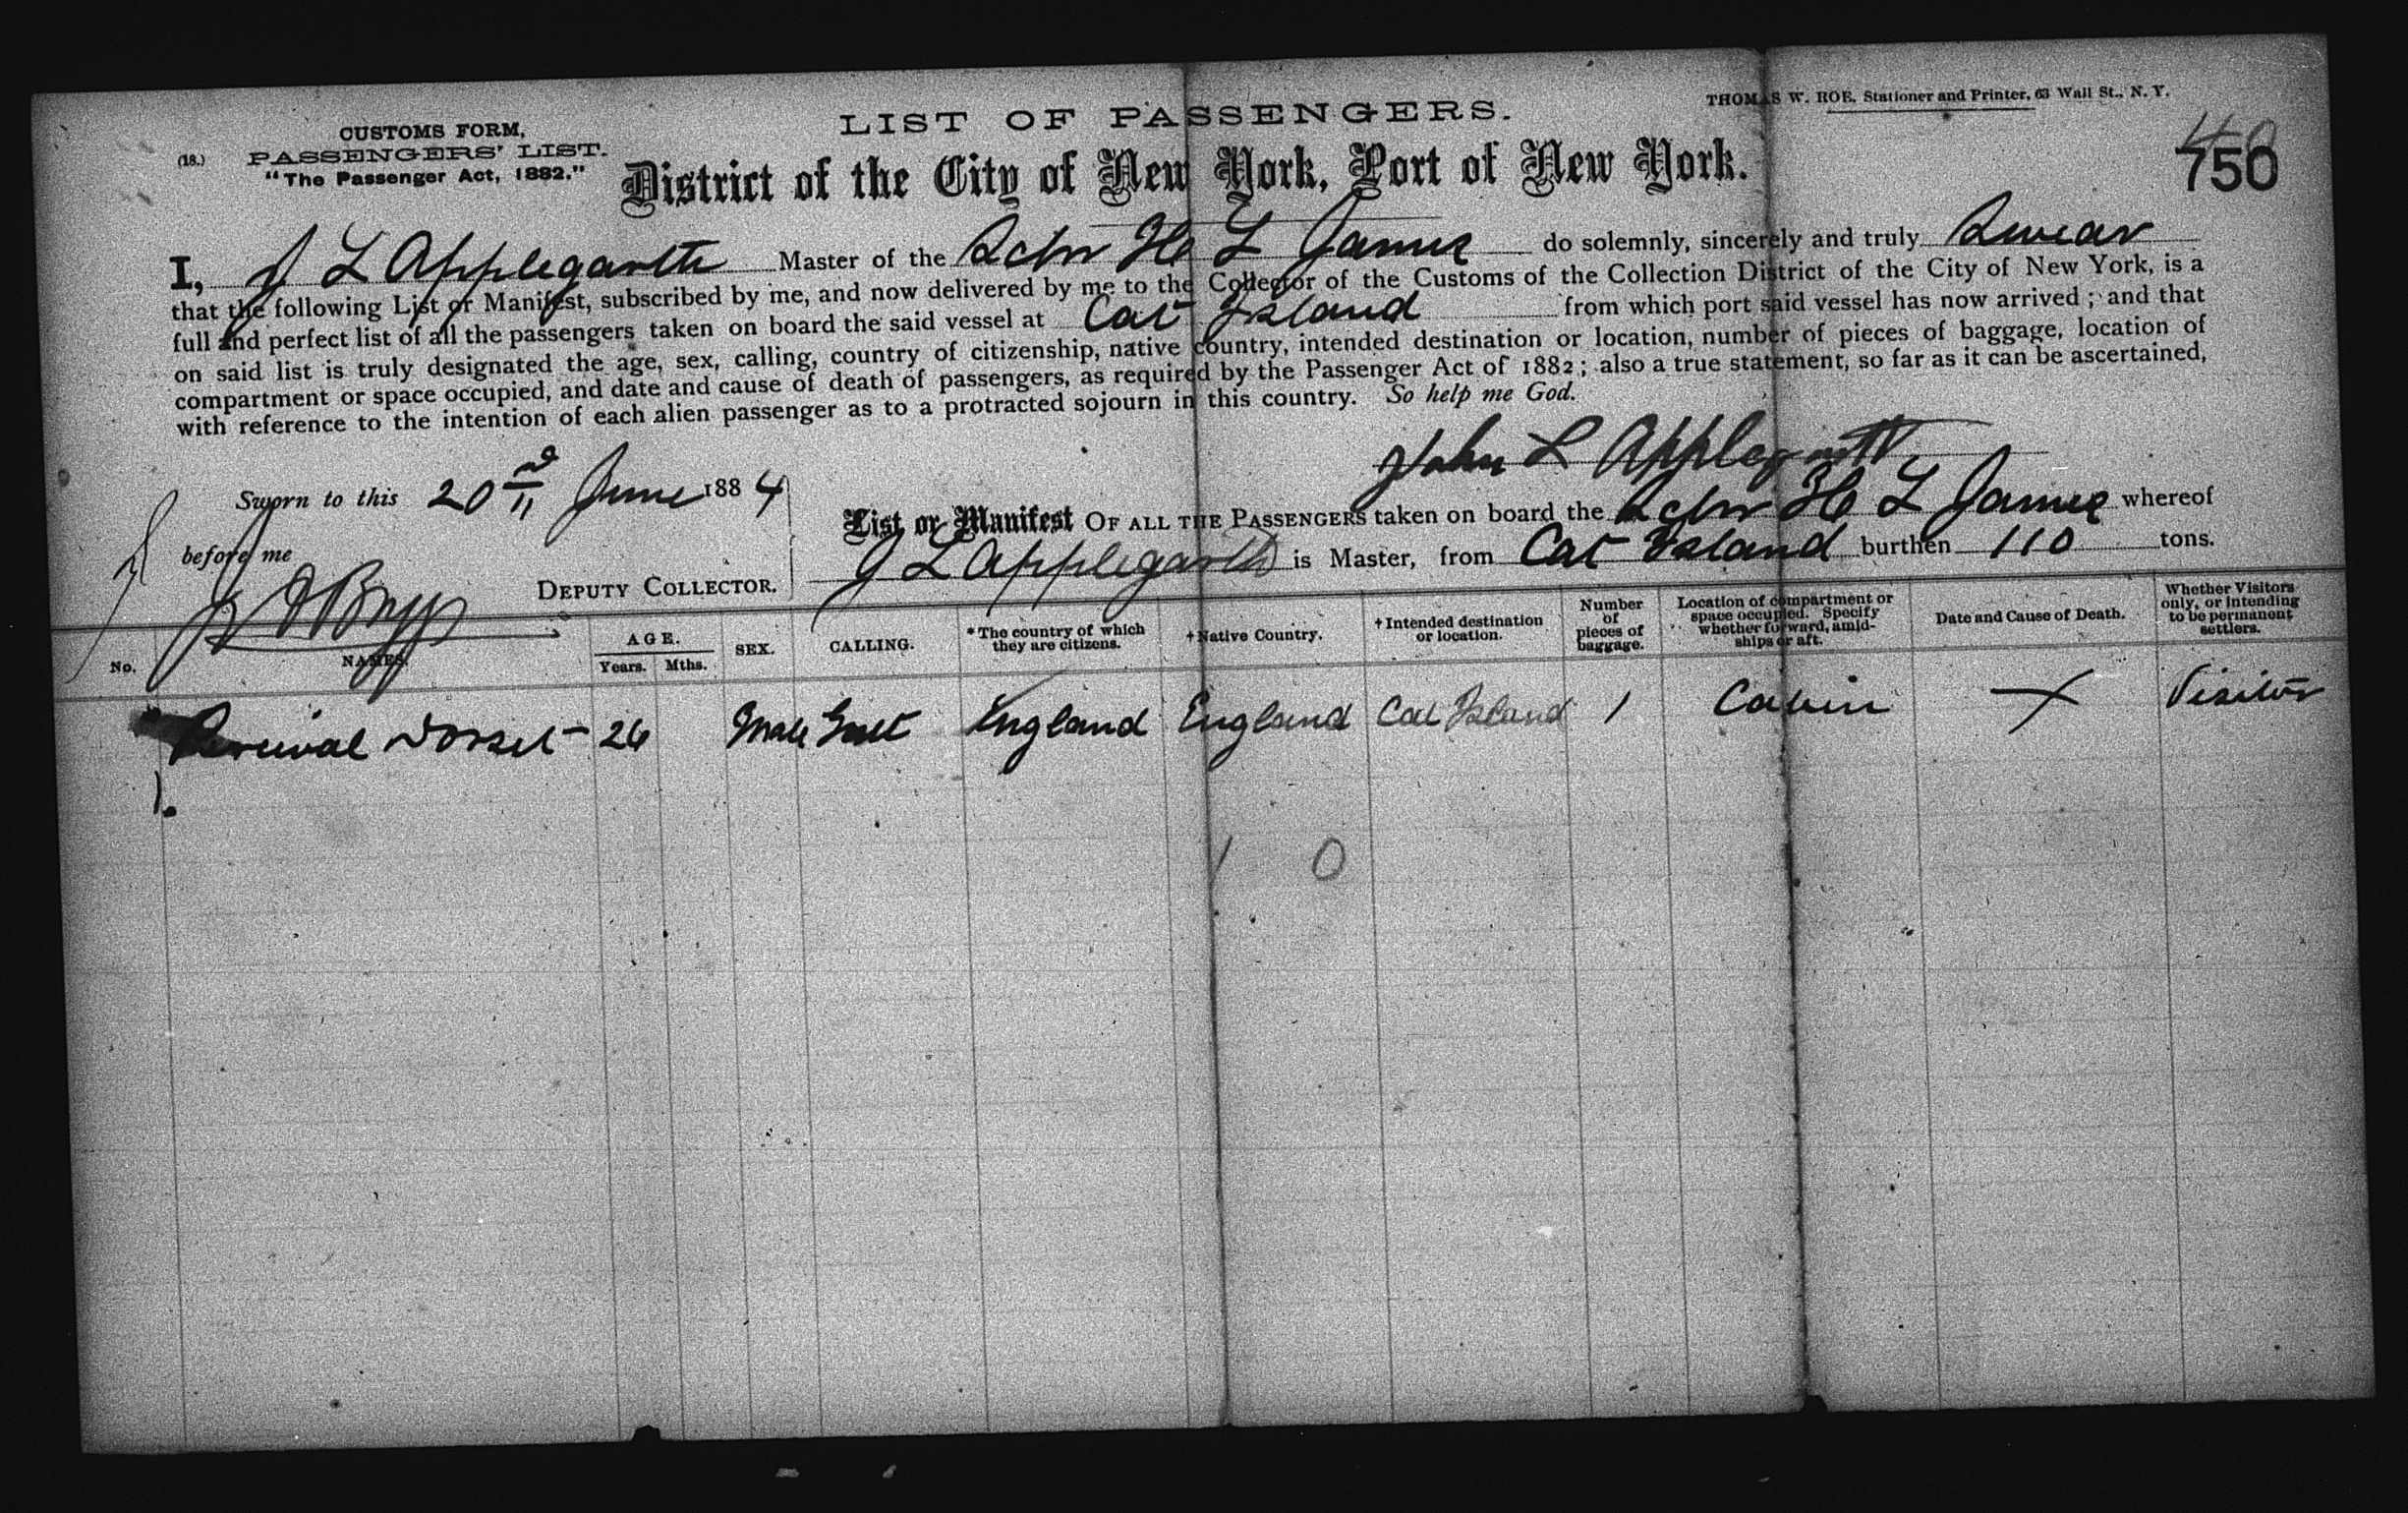 THOMAS W. ROE, Stationer and Printer, 63 Wall St., N. Y.
LIST OF PASSENGERS.
CUSTOMS FORM,
(18.) PASSENGERS' LIST.
"The Passenger Act, 1882."
48
750
District of the City of New York, Port of New York.
I, J L Applegarth Master of the Schr H L James do solemnly, sincerely and truly Swear
that the following List or Manifest, subscribed by me, and now delivered by me to the Collector of the Customs of the Collection District of the City of New York, is a
full and perfect list of all the passengers taken on board the said vessel at Cat Island from which port said vessel has now arrived; and that
on said list is truly designated the age, sex, calling, country of citizenship, native country, intended destination or location, number of pieces of baggage, location of
compartment or space occupied, and date and cause of death of passengers, as required by the Passenger Act of 1882; also a true statement, so far as it can be ascertained,
with reference to the intention of each alien passenger as to a protracted sojourn in this country. So help me God.
John L Applegarth
Sworn to this 20 June 1884
before me
DEPUTY COLLECTOR.
List or Manifest OF ALL THE PASSENGERS taken on board the Schr H L James whereof
J L Applegarth is Master, from Cat Island burthen 110 tons.
No. NAMES. AGE. Years. Mths. SEX. CALLING. *The country of which they are citizens. †Native Country. †Intended destination or location. Number of pieces of baggage. Location of compartment or space occupied. Specify whether forward, amidships or aft. Date and Cause of Death. Whether Visitors only, or intending to be permanent settlers.
Percival Dorset 26 Male Gent England England Cat Island 1 Cabin X Visitor
1.
1 0